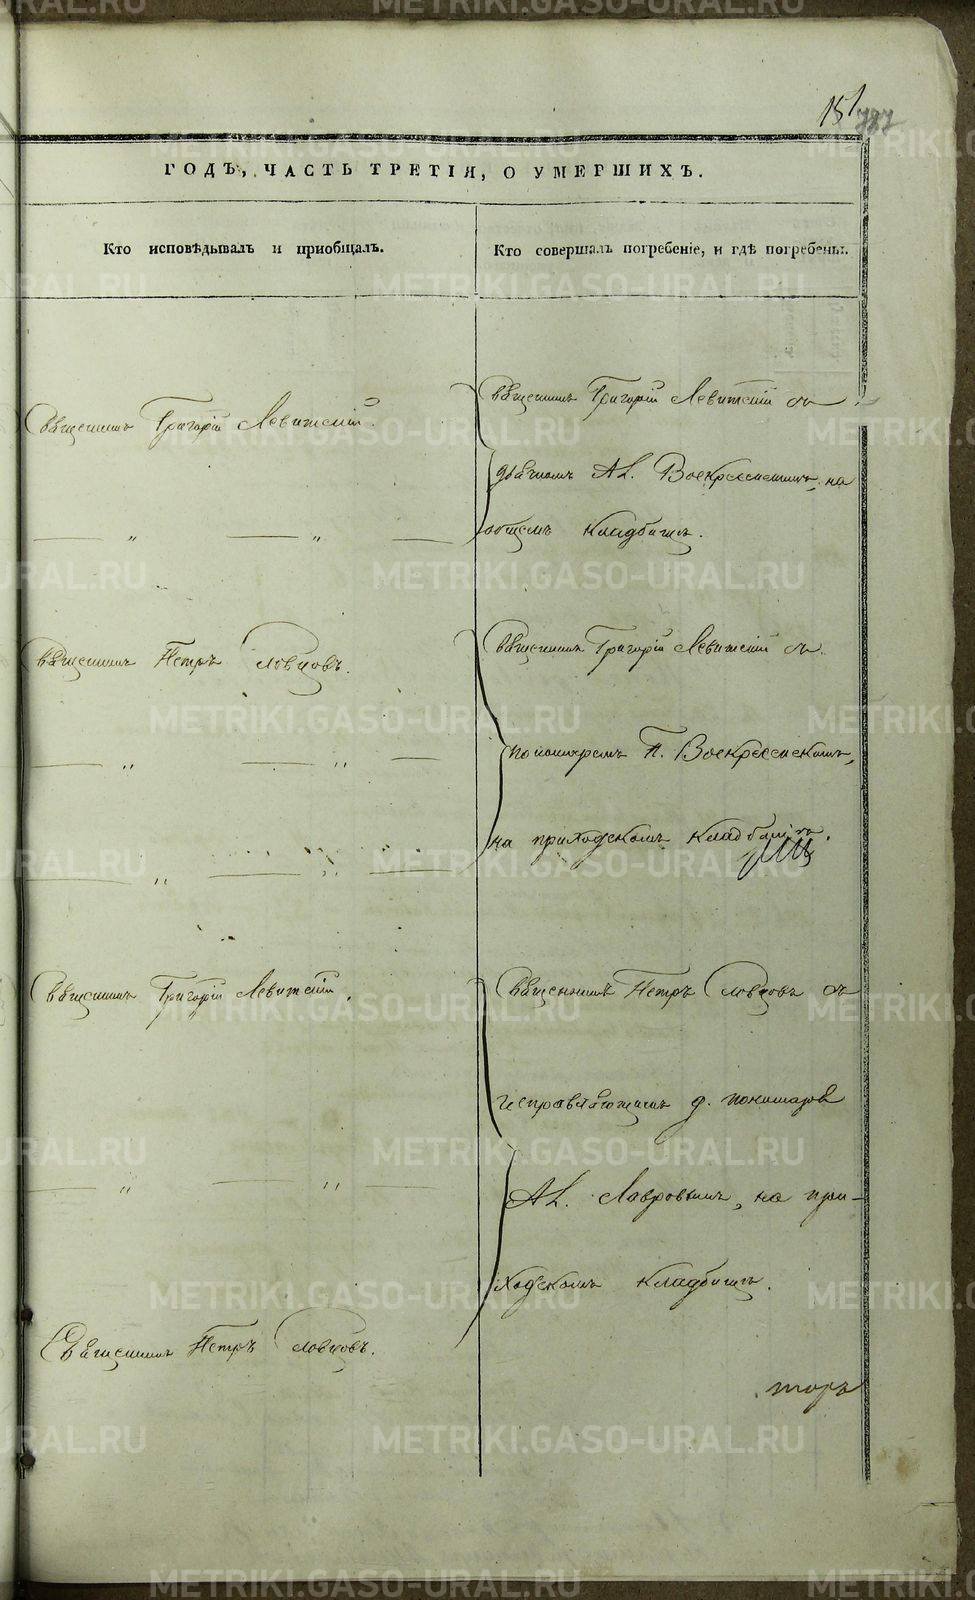 151
787
ГОДЪ, ЧАСТЬ ТРЕТІЯ, О УМЕРШИХЪ.
Кто исповѣдывалъ и приобщалъ.
Кто совершалъ погребеніе, и гдѣ погребены.
Священникъ Григорій Левитскій.
Священникъ Григорій Левитскій съ
дьячкомъ Ал. Воскресенскимъ, на
общемъ кладбищѣ.
— „ — „ —
Священникъ Петръ Словцовъ.
Священникъ Григорій Левитскій съ
пономаремъ П. Воскресенскимъ,
на приходскомъ кладбищѣ.
— „ — „ —
— „ — „ —
Священникъ Григорій Левитскій.
Священникъ Петръ Словцовъ съ
исправляющимъ д. пономаря
Ал. Лавровымъ, на при-
ходскомъ кладбищѣ.
— „ — „ —
Священникъ Петръ Словцовъ.
торъ
METRIKI.GASO-URAL.RU